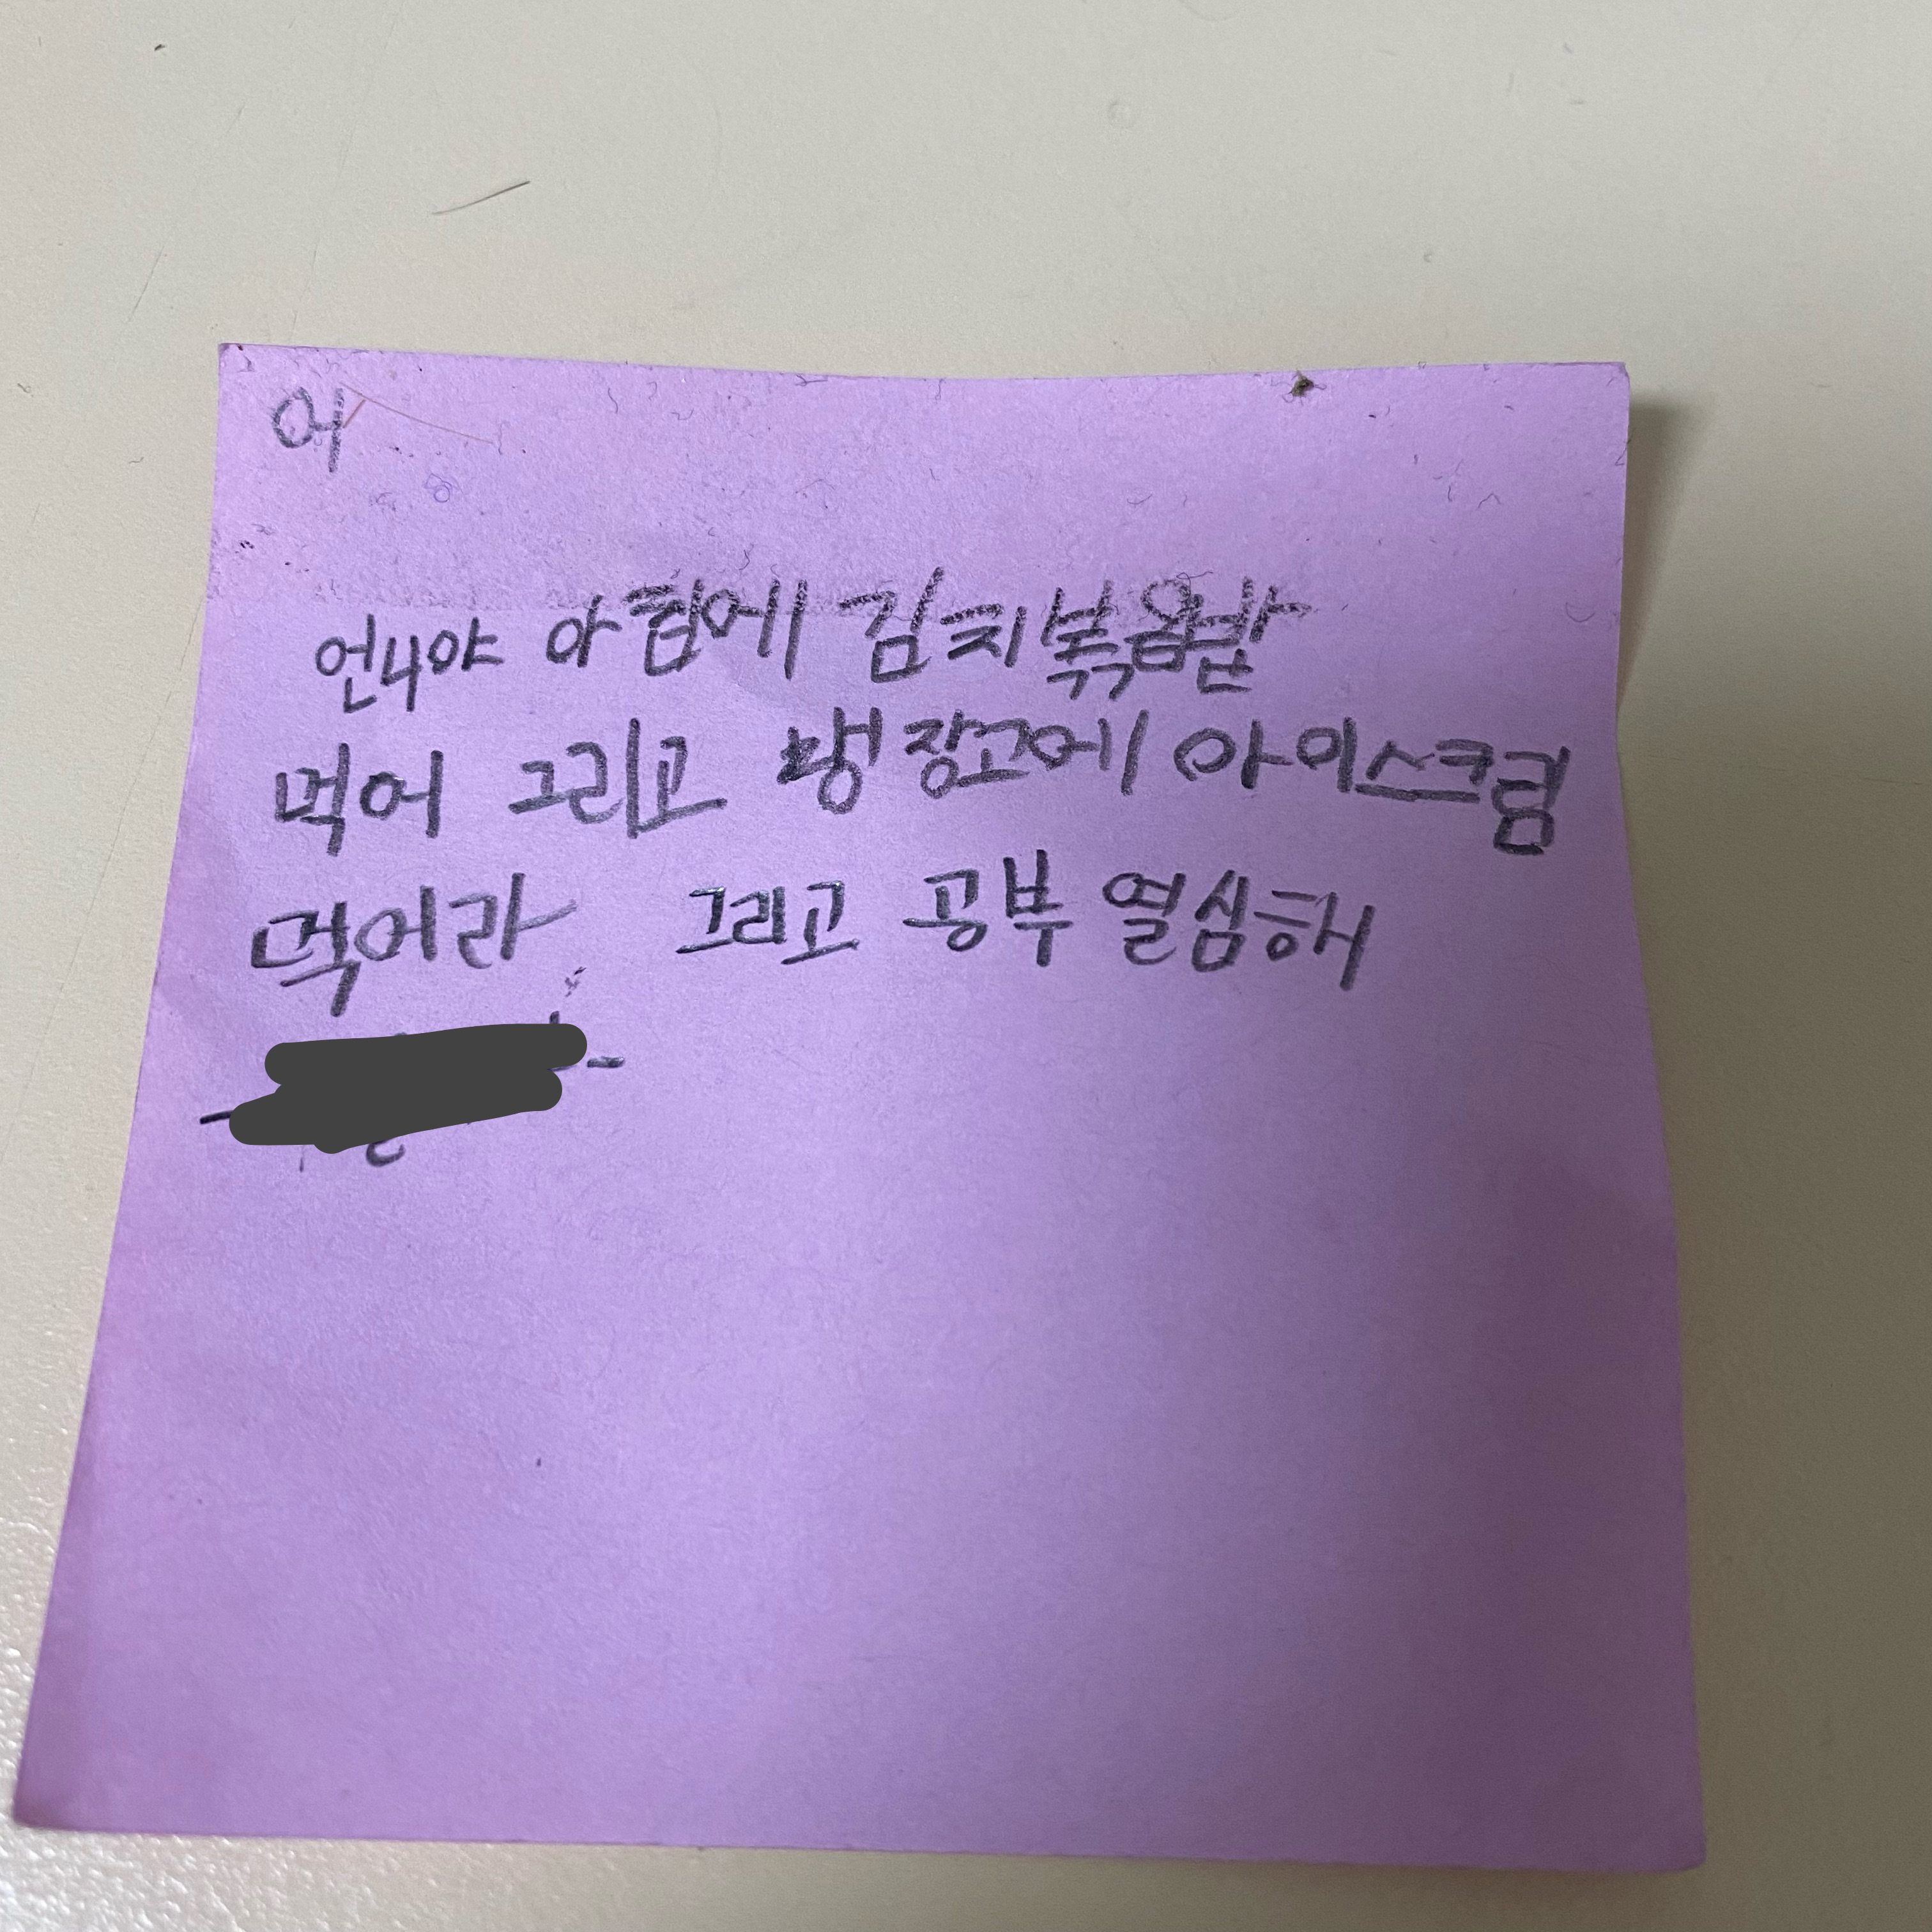 어
언니야 아침에 김치볶음밥
먹어 그리고 냉장고에 아이스크림
먹어라 그리고 공부 열심해